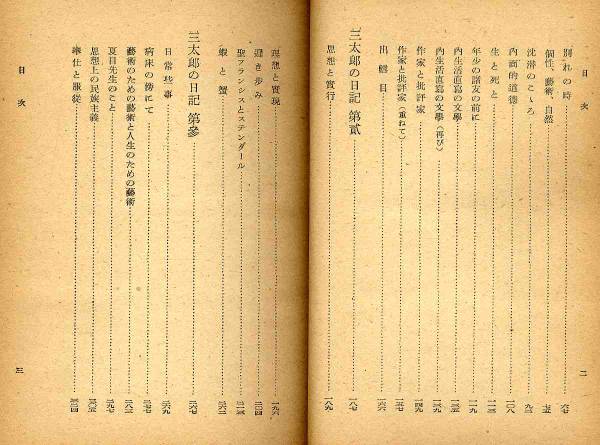 目次
二
別れの時……六七
個性、藝術、自然……七五
沈潜のこゝろ……九三
内面的道德……一〇八
生と死と……一一三
年少の諸友の前に……一一九
内生活直寫の文學……一二九
内生活直寫の文學(再び)……一三九
作家と批評家……一四九
作家と批評家(重ねて)……一五七
出鱈目……一六六
三太郎の日記 第貳……一八七
思想と實行……一八九
理想と實現……一九六
遲き歩み……二〇四
聖フランシスとステンダール
蝦と蟹
三太郎の日記 第參……二六七
日常些事……二六九
病床の傍にて……二七七
藝術のための藝術と人生のための藝術
夏目先生のこと……二九七
思想上の民族主義……三〇五
奉仕と服從
目次
三